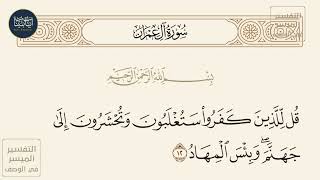 سُورَةُ آلِ عِمْرَانَ
التفسير
الميسر
بِسْمِ اللَّهِ الرَّحْمَٰنِ الرَّحِيمِ
قُل لِّلَّذِينَ كَفَرُوا۟ سَتُغْلَبُونَ وَتُحْشَرُونَ إِلَىٰ
جَهَنَّمَ ۚ وَبِئْسَ الْمِهَادُ ١٢
التفسير
الميسر
في الوصف